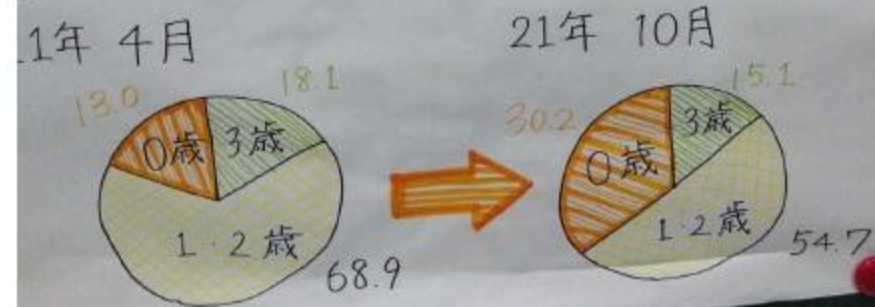 1年 4月
13.0
18.1
0歳
3歳
1・2歳
68.9
21年 10月
30.2
15.1
0歳
3歳
1・2歳
54.7